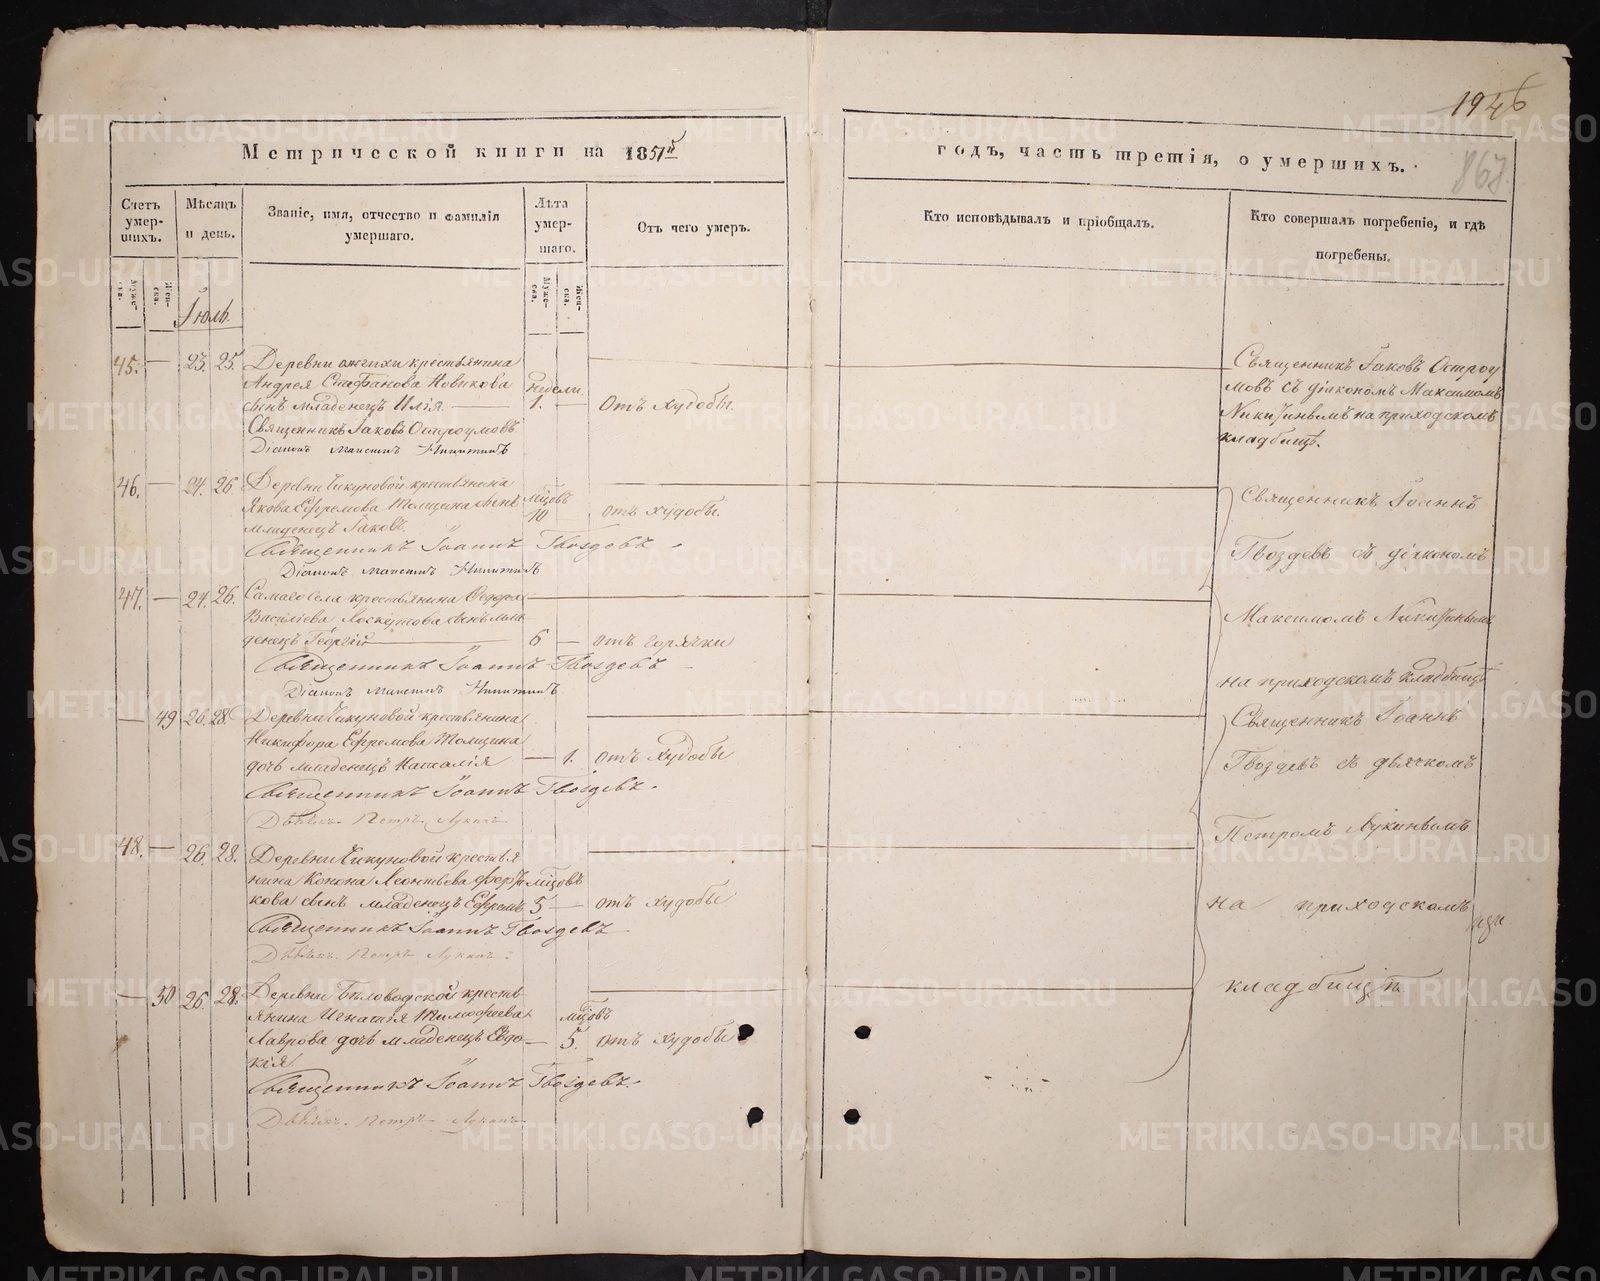 1946
867.
Метрической книги на 1851й
годъ, часть третія, о умершихъ.
Счетъ умер-
шихъ.
Мѣсяцъ
и день.
Званіе, имя, отчество и фамилія
умершаго.
Лѣта
умер-
шаго.
Отъ чего умеръ.
Кто исповѣдывалъ и пріобщалъ.
Кто совершалъ погребеніе, и гдѣ
погребены.
Муже-
ска.
Жен-
ска.
Іюль.
Муже-
ска.
Жен-
ска.
45. — 23. 25. Деревни крестьянина
Андрея Стефанова Новикова
сынъ младенецъ Илія. —
недели
1. —
отъ худобы.
Священникъ Іаковъ Остроумовъ.
Діаконъ Максимъ Никитинъ
Священникъ Іаковъ Остроу
мовъ съ діакономъ Максимомъ
Никитинымъ на приходскомъ
кладбищѣ.
46. — 24. 26. Деревни Чикуновой крестьянина
Якова Ефремова Толщина сынъ
младенецъ Іаковъ.
мцовъ
10
отъ худобы.
Священникъ Іоаннъ Гвоздевъ
Діаконъ Максимъ Никитинъ
Священникъ Іоаннъ
Гвоздевъ съ діякономъ
Максимомъ Никитинымъ
на приходскомъ кладбищѣ
47. — 24. 26. Самаго села крестьянина Ѳедора
Василіева Лоскутова сынъ мла
денецъ Георгій —
6 —
отъ горячки
Священникъ Іоаннъ Гвоздевъ
Діаконъ Максимъ Никитинъ
— 49 26. 28. Деревни Чикуновой крестьянина
Никифора Ефремова Толщина
дочь младенецъ Наталія
— 1.
отъ худобы
Священникъ Іоаннъ Гвоздевъ.
Дьячекъ Петръ Лукинъ
Священникъ Іоаннъ
Гвоздевъ съ дьячкомъ
Петромъ Лукинымъ
на приходскомъ
кладбищѣ
48. — 26. 28. Деревни Чикуновой крестья
нина Конона Леонтьева
кова сынъ младенецъ Ефремъ
мцовъ
5 —
отъ худобы
Священникъ Іоаннъ Гвоздевъ
Дьячекъ Петръ Лукинъ
— 50 26. 28. Деревни Беловодской кресть
янина Игнатія Тимофеева
Лаврова дочь младенецъ Евдо
кія.
мцовъ
— 5.
отъ худобы
Священникъ Іоаннъ Гвоздевъ.
Дьячекъ Петръ Лукинъ
METRIKI.GASO-URAL.RU